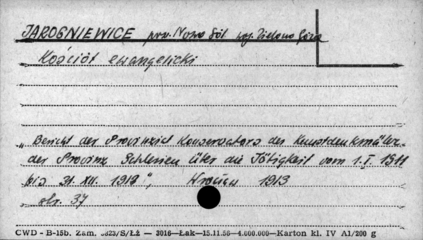 JAROGNIEWICE pow. Nowa Sól woj. Zielona Góra
Kościół ewangelicki
„Bericht der Provinzial Konservators der Kunstdenkmäler
der Provinz Schlesien über die Tätigkeit vom 1.I. 1911
bis 31.XII. 1912", Wrocław 1913
str. 37
CWD - B-15b. Zam. /S/Łź — 3016—Łak—15.11.56—4.000.000—Karton kl. IV A1/200 g